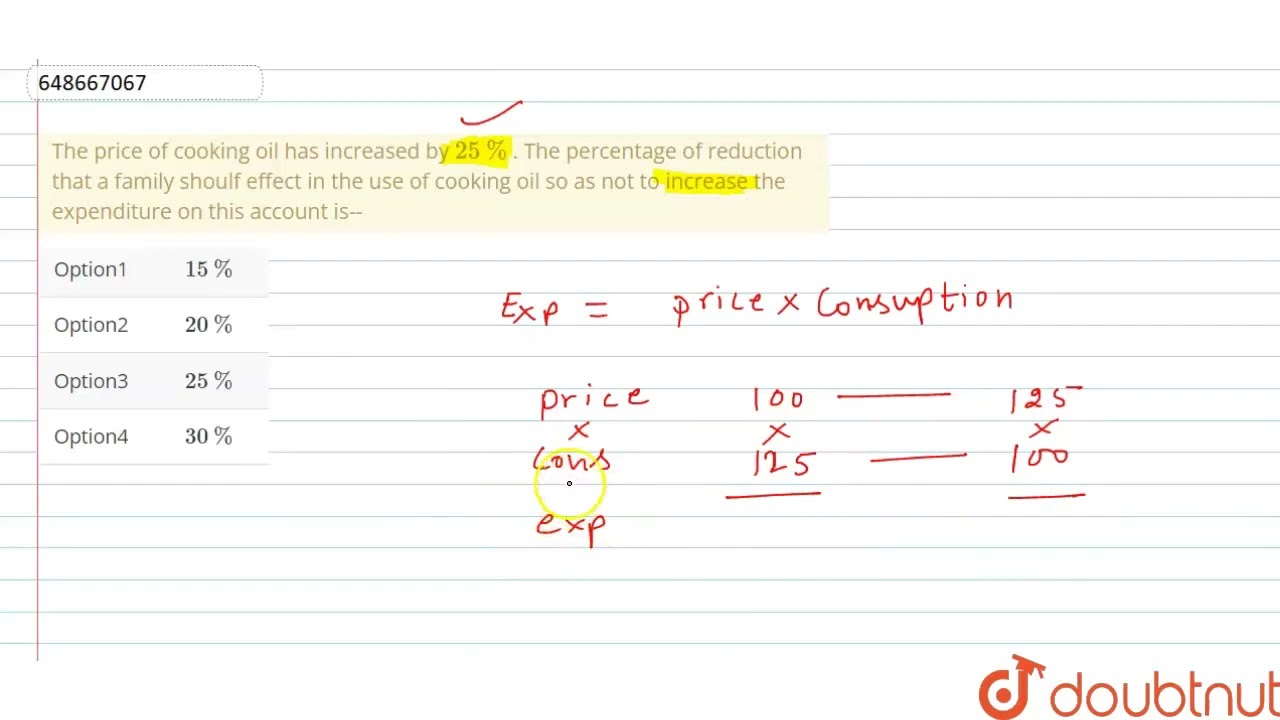 648667067
The price of cooking oil has increased by 25 % . The percentage of reduction
that a family shoulf effect in the use of cooking oil so as not to increase the
expenditure on this account is--
Option1 15 %
Option2 20 %
Option3 25 %
Option4 30 %
Exp = price x Consuption
price 100 — 125
x x x
Cons 125 — 100
exp
doubtnut